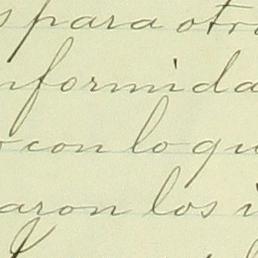 s para otr
nformida
o con lo qu
aron los i